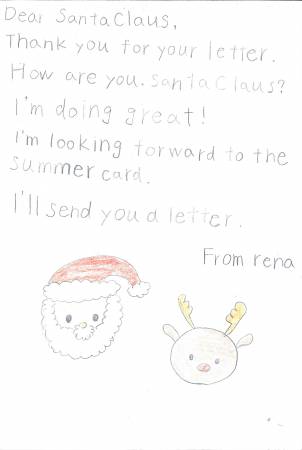 Dear Santa Claus,
Thank you for your letter.
How are you. Santa Claus?
I'm doing great!
I'm looking forward to the
summer card.
I'll send you a letter.
From rena